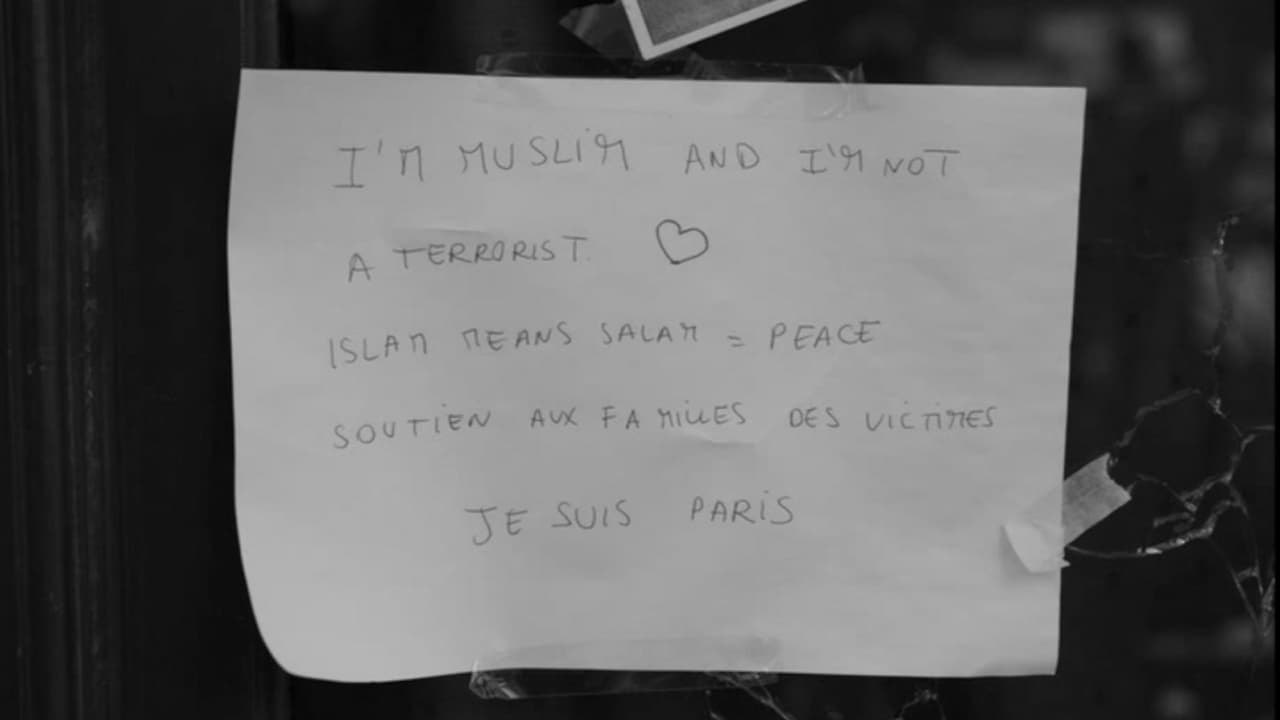 I'M MUSLIM AND I'M NOT
A TERRORIST.
ISLAM MEANS SALAM = PEACE
SOUTIEN AUX FAMILLES DES VICTIMES
JE SUIS PARIS